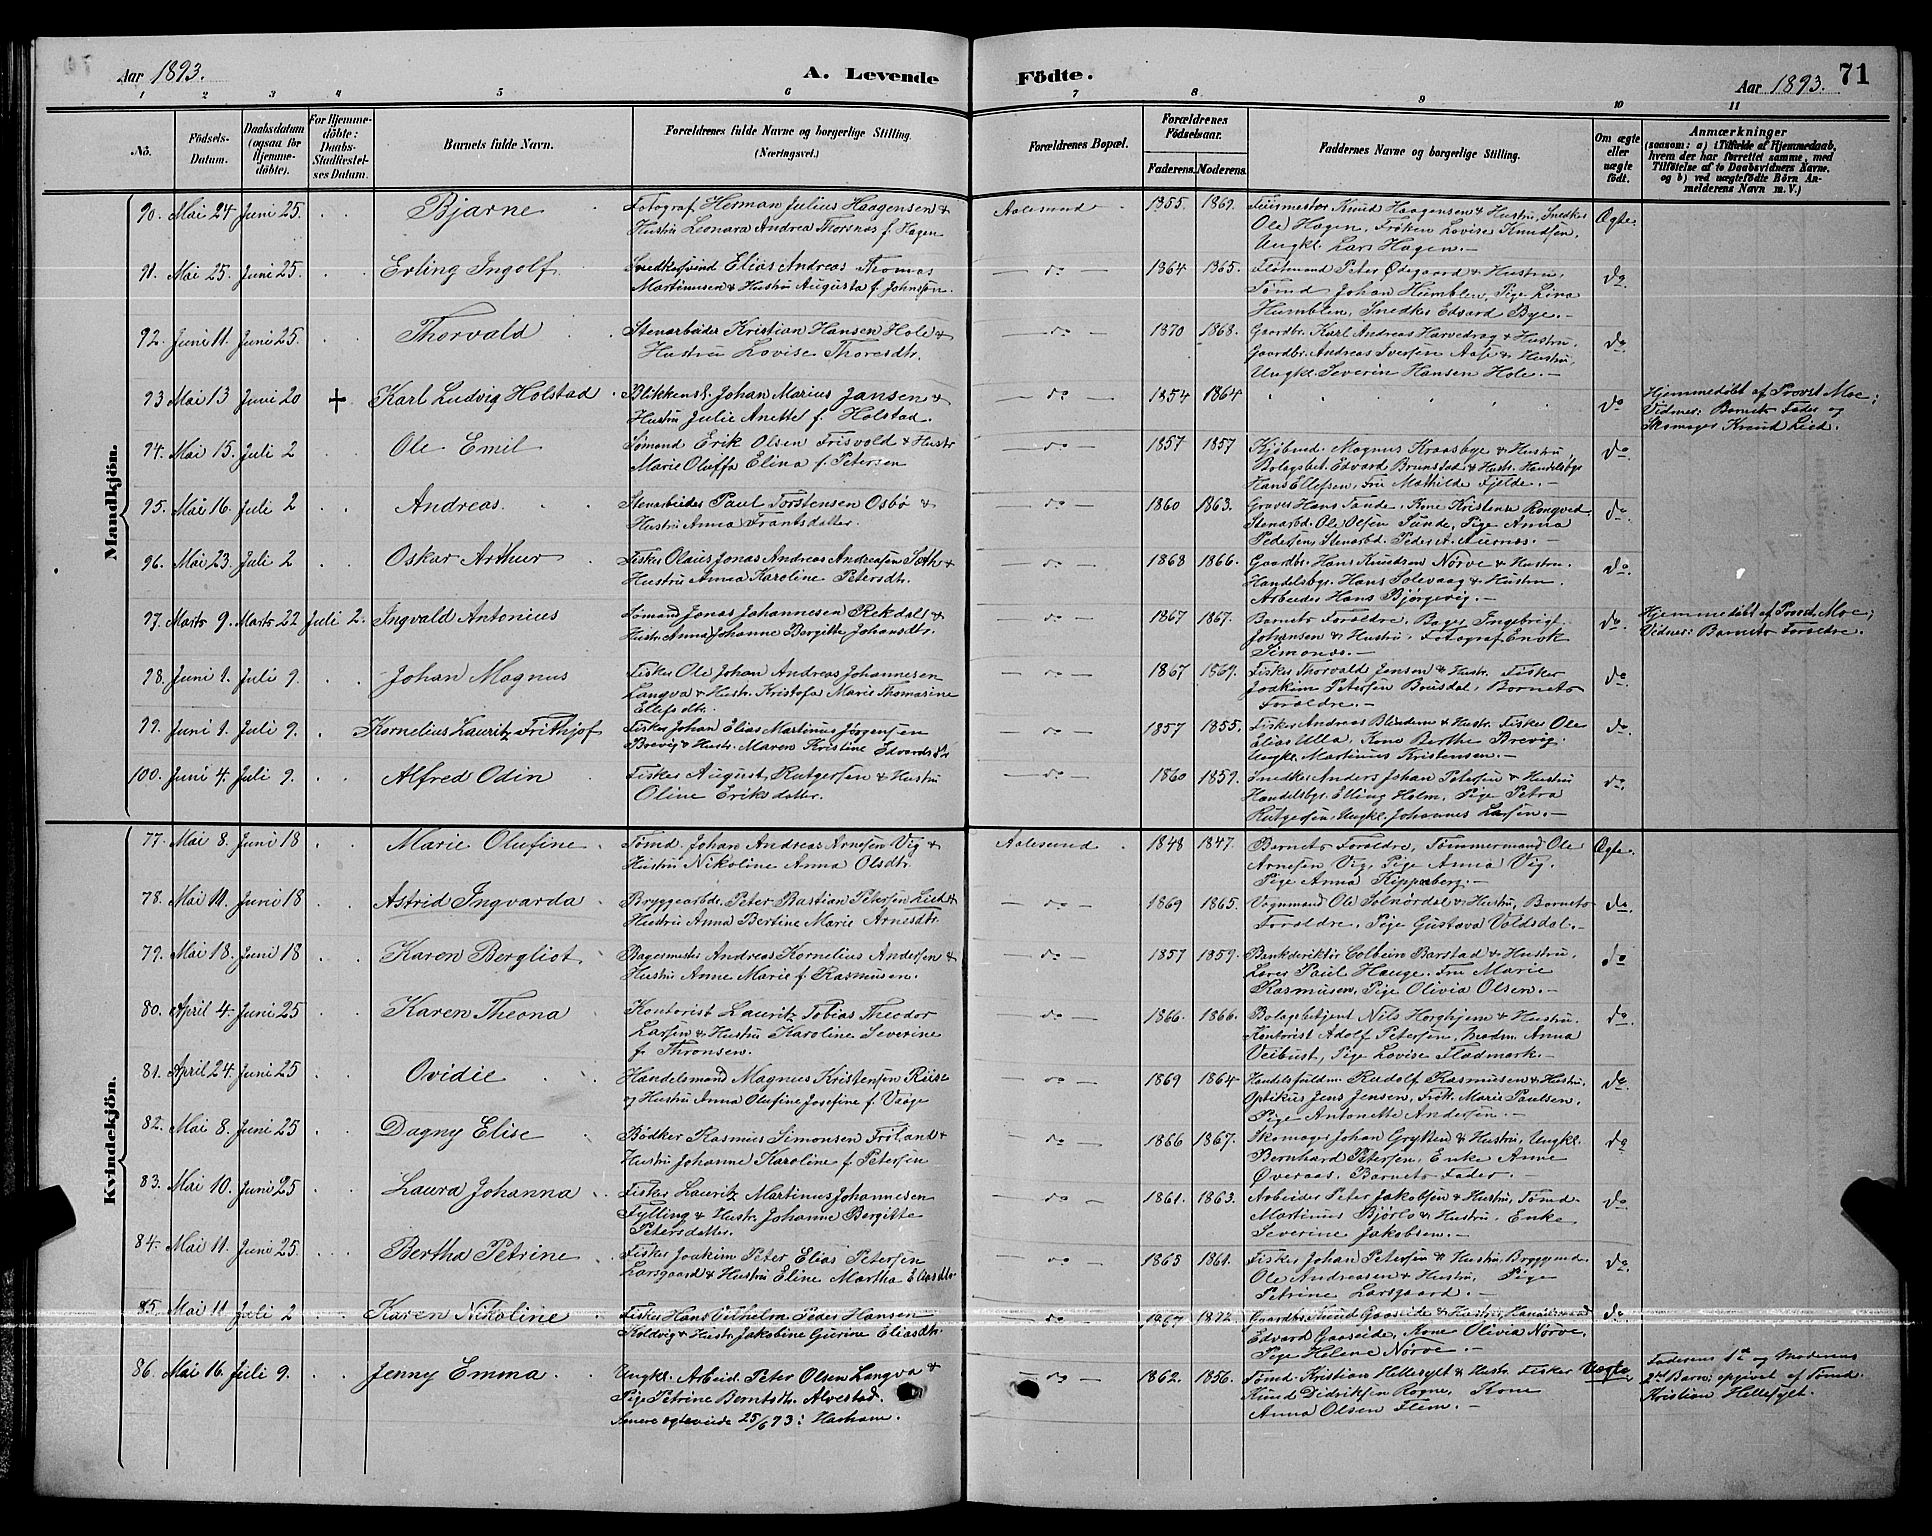 Aar 1893. A. Levende Födte. Aar 1893. 71
1 2 3 4 5 6 7 8 9 10 11
No. Födsels-Datum. Daabsdatum (ogsaa for Hjemmedöbte). For Hjemmedöbte: Daabs-Stadfæstelses Datum. Barnets fulde Navn. Forældrenes fulde Navne og borgerlige Stilling. (Næringsvei.) Forældrenes Bopæl. Forældrenes Födselsaar. Faderens. Moderens. Faddernes Navne og borgerlige Stilling. Om ægte eller uægte födt. Anmærkninger (saasom: a) i Tilfælde af Hjemmedaab, hvem der har forrettet samme, med Tilföielse af to Daabsvidners Navne, og b) ved uægtefödte Börn Anmelderens Navn m. V.)
Mandkjön.
90. Mai 24 Juni 25. Bjarne Fotograf Herman Julius Haagensen & Aalesund 1855. 1869. Knud Haagensen & Hustru, Snedker Ægte.
Hustru Leonara Andrea Thorsnæs f. Hagen Ole Hagen, Frøken Lovise Knudsen,
Ungkl. Lars Hagen.
91. Mai 25. Juni 25. Erling Ingolf Snedkersvend Elias Andreas Thomas do 1864 1865. Flotmand Peter Ødegaard & Hustru, do
Martinusen & Hustru Augusta f. Johnsen. Tømd Johan Humblen, Pige Lina
Humblen, Snedker Edvard Bye.
92. Juni 11. Juni 25. Thorvald Stenarbeider Kristian Hansen Hole & do 1870 1868. Gaardbr. Karl Andreas Harvedrag & Hustru, do
Hustru Lovise Thoresdtr. Gaardbr. Andreas Iversen Aase & Hustru,
Ungkl. Severin Hansen Hole.
93 Mai 13 Juni 20 † Karl Ludvig Holstad Blikkensl. Johan Marius Jansen & do 1854 1864 do Hjemmedøbt af Provst Moe;
Hustru Julie Anette f. Holstad. Vidner: Barnets Fader og
Skomager Knud Lied.
94. Mai 15. Juli 2 Ole Emil Sømand Erik Olsen Frisvold & Hustr do 1857 1857 Kjøbmd. Magnus Kraasbye & Hustru, do
Marie Oluffa Elina f. Petersen Bolagsbet. Edvard Brunstad & Hustr. Handelsbgr
Hans Ellefsen, Fru Mathilde Fjelde.
95. Mai 16. Juli 2 Andreas. Stenarbeider Paul Torstensen Osbø & do 1860 1863. Graver Hans Sande, Kone Kristense Rongved, do
Hustru Anna Frantsdatter. Stenarbd. Ole Olsen Sunde, Pige Anna
Pedersen, Stenarbd. Peder A. Aurnæs.
96. Mai 23. Juli 2 Oskar Arthur Fisker Olaus Jonas Andreas Andreasen Sæth & do 1868 1866. Gaardbr. Hans Knudsen Nørve & Hustru, do.
Hustru Anna Karoline Petersdtr. Handelsbgr. Hans Solevaag & Hustru
Arbeider Hans Bjørgevig.
97. Marts 9. Marts 22 Juli 2. Ingvald Antonius Sømand Jonas Johannesen Rekdal & do 1867 1867. Barnets Forældre, Bager Ingebrigt do. Hjemmedøbt af Provst Moe;
Hustr. Anna Johanne Bergitte Johansdtr. Johansen & Hustru, Fotograf Enok Vidner: Barnets Forældre.
Simonds.
98. Juni 1. Juli 9. Johan Magnus Fisker Ole Johan Andreas Johannesen do 1867 1869. Fisker Thorvald Jensen & Hustr. Fisker do.
Langva & Hustr. Kristofa Marie Thomasine Joakim Petersen Brusdal, Barnets
Ellefsdtr. Forældre.
99. Juni 1. Juli 9. Kornelius Lauritz Frithjof Fisker Johan Elias Martinus Jørgensen do 1857 1855. Fisker Andreas Blindem & Hustr. Fisker Ole do
Brevig & Hustr. Maren Kristine Edvardsdtr Elias Ulla, Kone Berthe Brevig,
Ungkl. Martinus Kristensen.
100. Juni 4. Juli 9. Alfred Odin Fisker August Rutgersen & Hustru do 1860 1859. Snedker Anders Johan Petersen & Hustru do.
Oline Eriksdatter. Handelsbgr. Elling Holm, Pige Petra
Rutgersen, Ungkl. Johannes Larsen.
Kvindekjön.
77. Mai 8. Juni 18 Marie Olufine Tømd. Johan Andreas Arnesen Vig & Aalesund 1848 1847. Barnets Forældre, Tømmermand Ole Ægte.
Hustru Nikoline Anna Olsdtr. Arnesen Vig, Pige Anna Vig,
Pige Anna Kipperberg.
78. Mai 11. Juni 18 Astrid Ingvarda Bryggearbdr. Peter Bastian Petersen Lied & do 1869 1865. Vognmand Ole Solnørdal & Hustru, Barnets do.
Hustru Anna Bertine Marie Arnesdtr. Forældre, Pige Gustava Valdsdal.
79. Mai 18. Juni 18 Karen Bergliot Bagermester Andreas Kornelius Andersen & do 1857 1859. Bankdirektør Colbein Barstad & Hustru, do
Hustru Anne Marie f. Rasmusen. Lærer Paul Hauge, Fru Marie
Rasmusen, Pige Olivia Olsen.
80. April 4. Juni 25 Karen Theona Kontorist Lauritz Tobias Theodor do 1866. 1866. Bolagsbetjent Nils Horghjem & Hustru. do.
Larsen & Hustru Karoline Severine Kontorist Adolf Petersen, Madm. Anna
f. Thronsen. Veibust, Pige Lovise Fladmark.
81. April 24. Juni 25 Ovidie Handelsmand Magnus Kristensen Riise do 1869 1864 Handelsfuldm. Rudolf Rasmusen & Hustru, do.
og Hustru Anna Olufine Josefine f. Vaage Optikus Jens Jensen, Frøk. Marie Paulsen,
Pige Antonette Andersen.
82. Mai 8. Juni 25 Dagny Elise Bødker Rasmus Simonsen Frøland & do 1866 1867. Skomager Johan Grytten & Hustru, Ungkl. do
Hustru Johanne Karoline f. Petersen Bernhard Petersen, Enke Anne
Øveraas, Barnets Fader.
83. Mai 10. Juni 25 Laura Johanna Fisker Lauritz Martinus Johannesen do 1861. 1863. Arbeider Peter Jakobsen & Hustru, Tømd. do
Fylling & Hustr. Johanne Bergitte Martinus Bjørlo & Hustru, Enke
Petersdatter. Severine Jakobsen.
84. Mai 11. Juni 25. Bertha Petrine Fisker Joakim Peter Elias Petersen do 1863 1861. Fisker Johan Petersen & Hustru, Bryggmd. do
Larsgaard & Hustru Eline Martha Eliasdtr. Ole Andreasen & Hustru, Pige
Petrine Larsgaard.
85. Mai 11 Juli 2 Karen Nikoline Fisker Hans Vilhelm Peder Hansen do 1867 1872. Gaardbr. Knud Gaaseide & Hustru, Handelsmand do.
Koldvig & Hustr. Jakobine Gurine Eliasdtr. Edvard Gaaseide, Kone Olivia Nørve,
Pige Helene Nørve.
86. Mai 16. Juli 9. Jenny Emma Ungkl. Arbeid. Peter Olsen Langva & do 1862. 1856. Tømd. Kristian Hellesylt & Hustr. Fisker Uægte Faderens 1te og Moderens
Pige Petrine Berntsdtr. Alvestad. Knud Didriksen Rogne, Kone 2det Barn; opgivet af Tømd.
Senere ægteviede 25/6 93 i Harham. Anna Olsen Flem. Kristian Hellesylt.